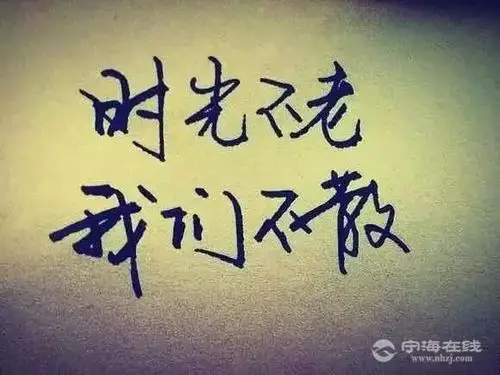 时光不老
我们不散
宁海在线
www.nhzj.com